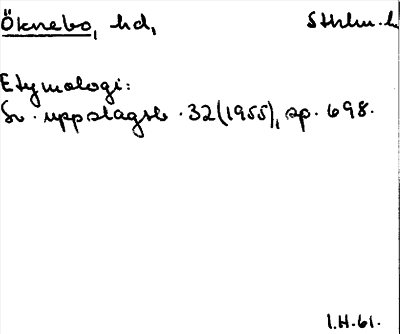 Öknebo, hd, Sthlm. l
Etymologi:
Sv. uppslagsb. 32 (1955), sp. 698.
I.H. 61.